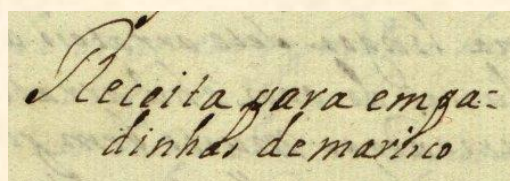 Receita para empa=
dinhas de marisco